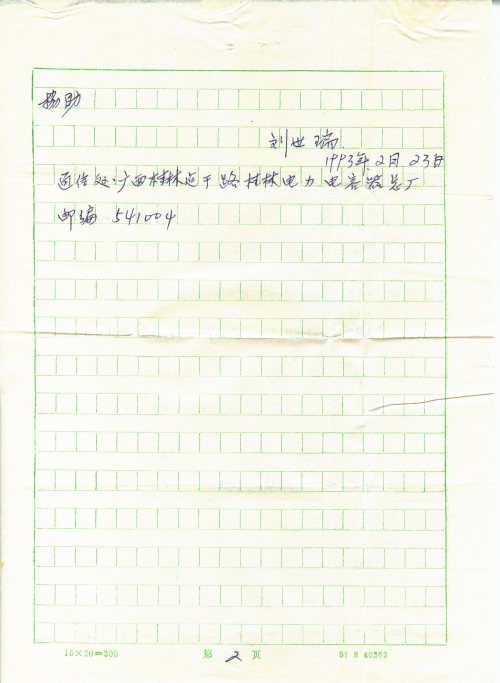 协助
刘世瑞.
1993年2月23日
通信处:广西桂林 干路桂林电力电容器总厂
邮编 541004
15×20=300 第 2 页 91 8 40362